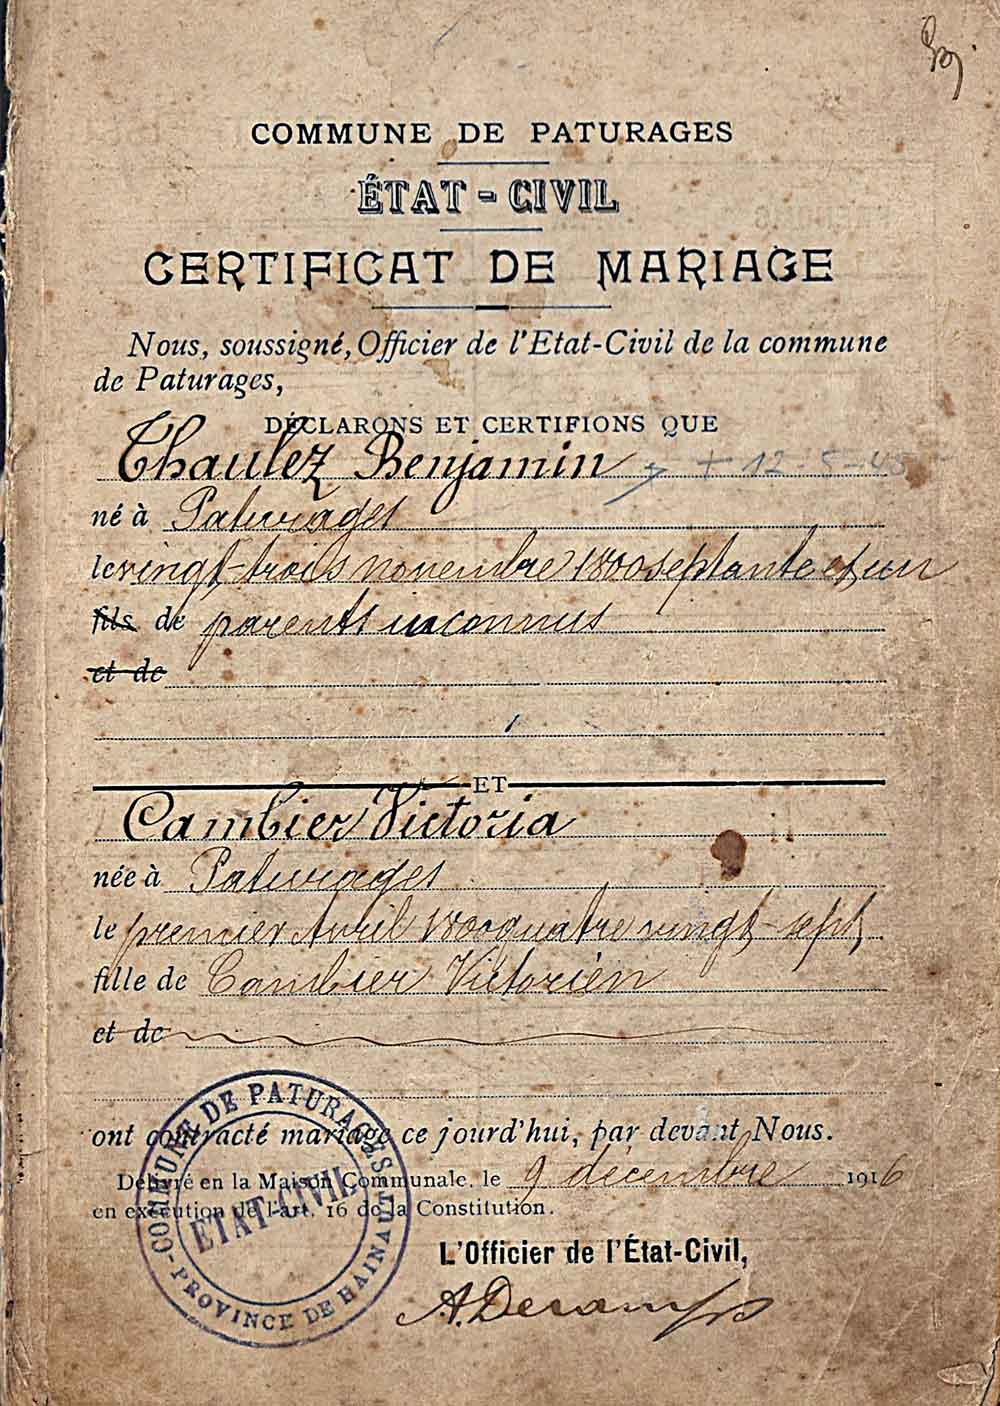 COMMUNE DE PATURAGES
ÉTAT-CIVIL
CERTIFICAT DE MARIAGE
Nous, soussigné, Officier de l'Etat-Civil de la commune
de Paturages,
DÉCLARONS ET CERTIFIONS QUE
Thaulez Benjamin + 12-5-45
né à Paturages
le vingt-trois novembre 1800 septante et un
fils de parents inconnus
et de
ET
Cambier Victoria
née à Paturages
le premier Avril 1800 quatre vingt-sept
fille de Cambier Victorien
et de
ont contracté mariage ce jourd'hui, par devant Nous.
Délivré en la Maison Communale, le 9 décembre 1916
en exécution de l'art. 16 de la Constitution.
L'Officier de l'État-Civil,
A. Descamps
COMMUNE DE PATURAGES
ÉTAT-CIVIL
PROVINCE DE HAINAUT